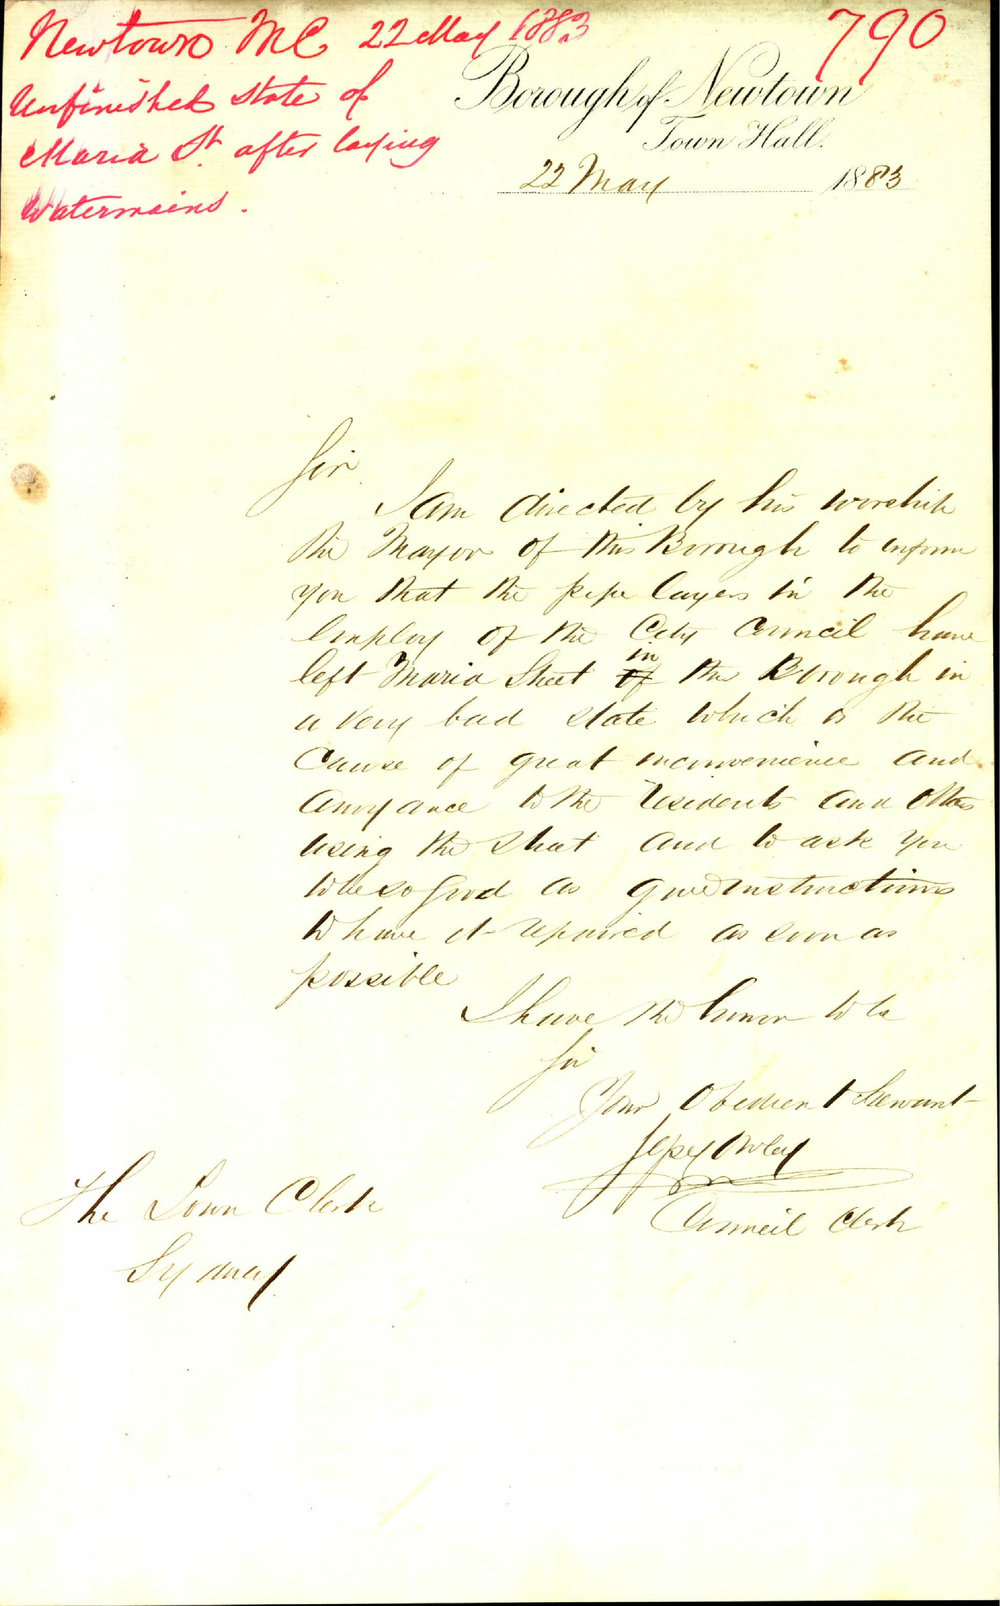 Newtown M C 22 May 1883
790
Unfinished state of
Maria St. after laying
Watermains.
Borough of Newtown
Town Hall.
22 May 1883
Sir
I am directed by his worship
the Mayor of this Borough to inform
you that the pipe layers in the
employ of the City Council have
left Maria Street of in this Borough in
a very bad state which is the
Cause of great inconvenience and
annoyance to the residents and others
using the street and to ask you
to be so good as give instructions
to have it repaired as soon as
possible
I have the honor to be
Sir
Your Obedient Servant
Council Clerk
The Town Clerk
Sydney